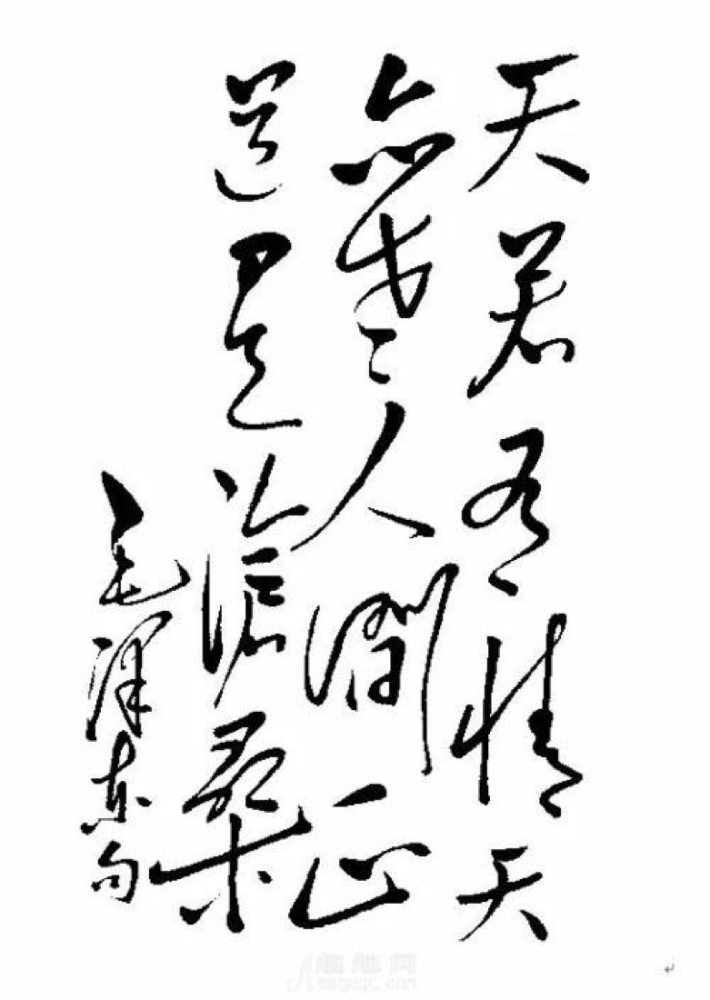 天若有情天
亦老人間正
道是滄桑
毛泽东句